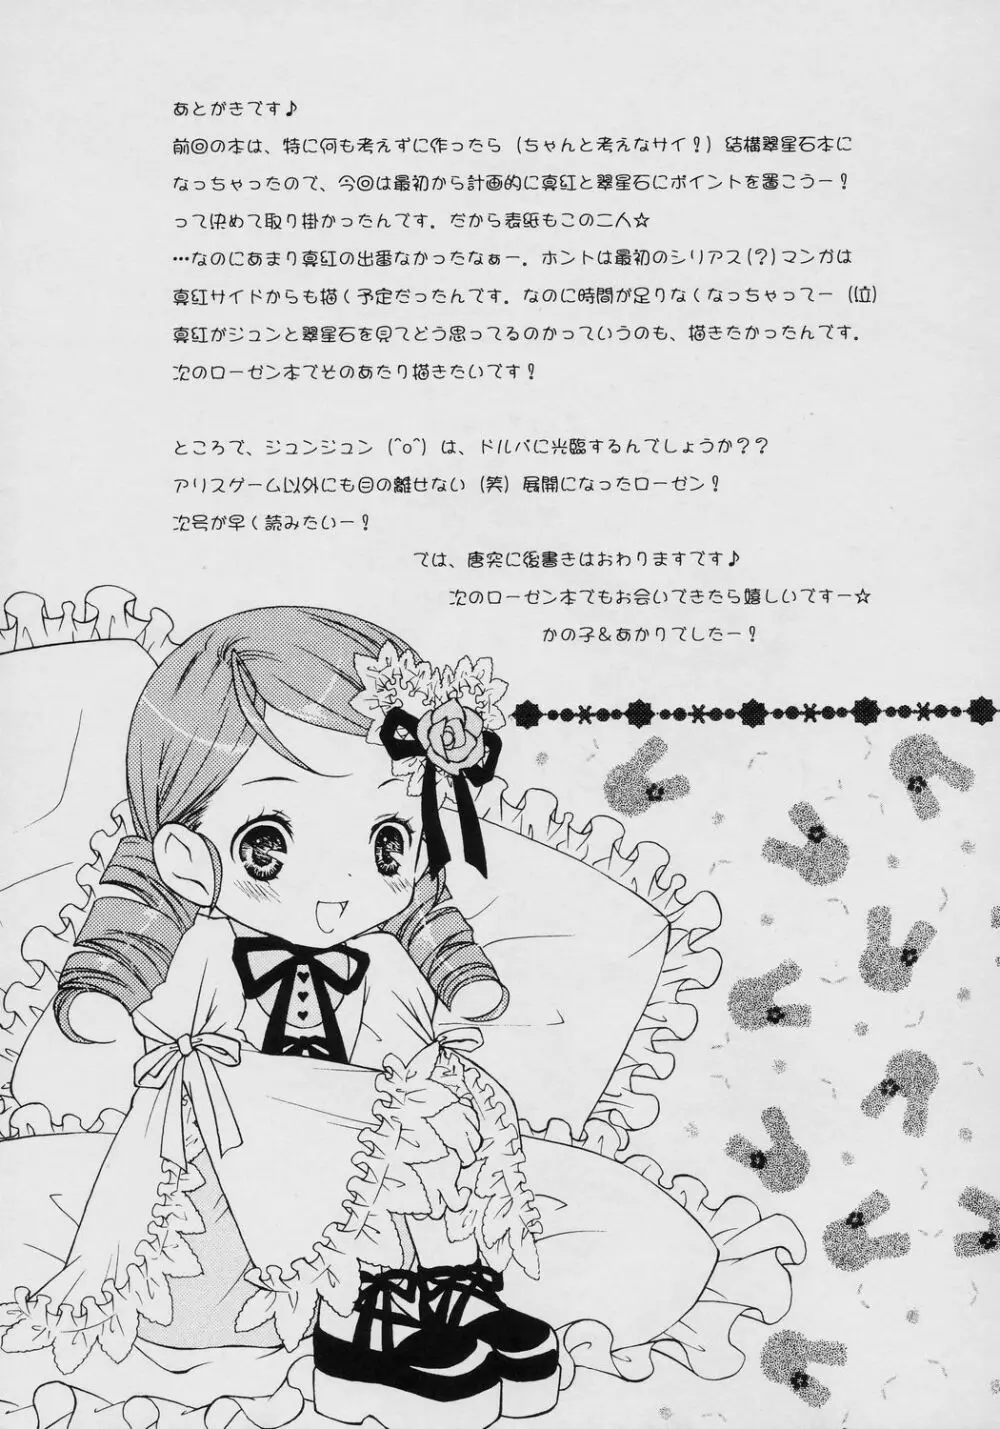 あとがきです♪
前回の本は、特に何も考えずに作ったら（ちゃんと考えなサイ！）結構翠星石本に
なっちゃったので、今回は最初から計画的に真紅と翠星石にポイントを置こうー！
って決めて取り掛かったんです．だから表紙もこの二人☆
…なのにあまり真紅の出番なかったなぁー．ホントは最初のシリアス(？)マンガは
真紅サイドからも描く予定だったんです．なのに時間が足りなくなっちゃってー（泣）
真紅がジュンと翠星石を見てどう思ってるのかっていうのも、描きたかったんです．
次のローゼン本でそのあたり描きたいです！
ところで、ジュンジュン（^o^）は、ドルパに光臨するんでしょうか？？
アリスゲーム以外にも目の離せない（笑）展開になったローゼン！
次号が早く読みたいー！
では、唐突に後書きはおわりますです♪
次のローゼン本でもお会いできたら嬉しいですー☆
かの子＆あかりでしたー！